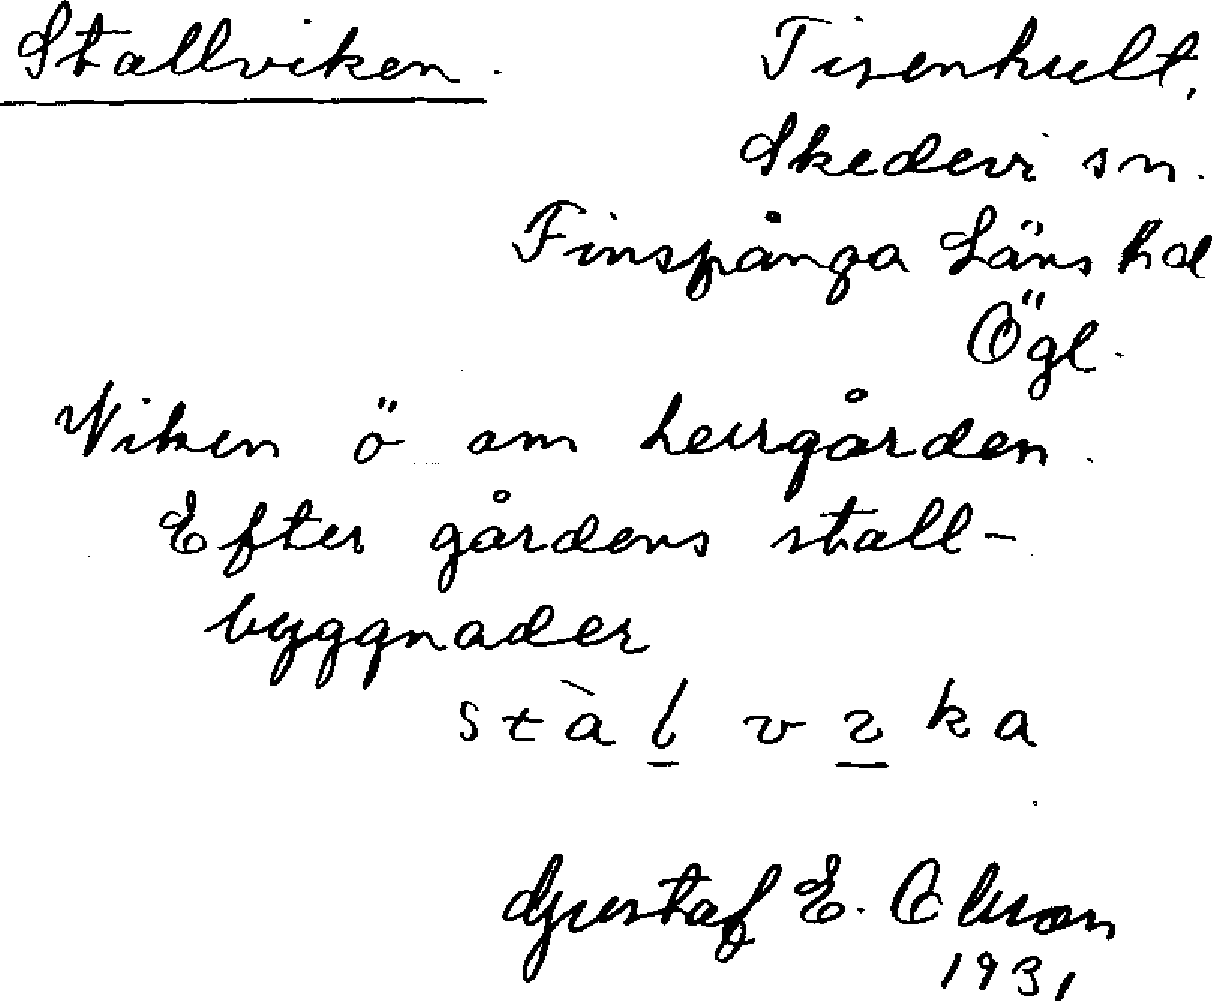 Stallviken. Tisenhult,
Skedevi sn.
Finspånga Läns hd
Ögl.
Viken ö om herrgården.
Efter gårdens stall-
byggnader
stàl v ka
Gustaf E. Olson
1931